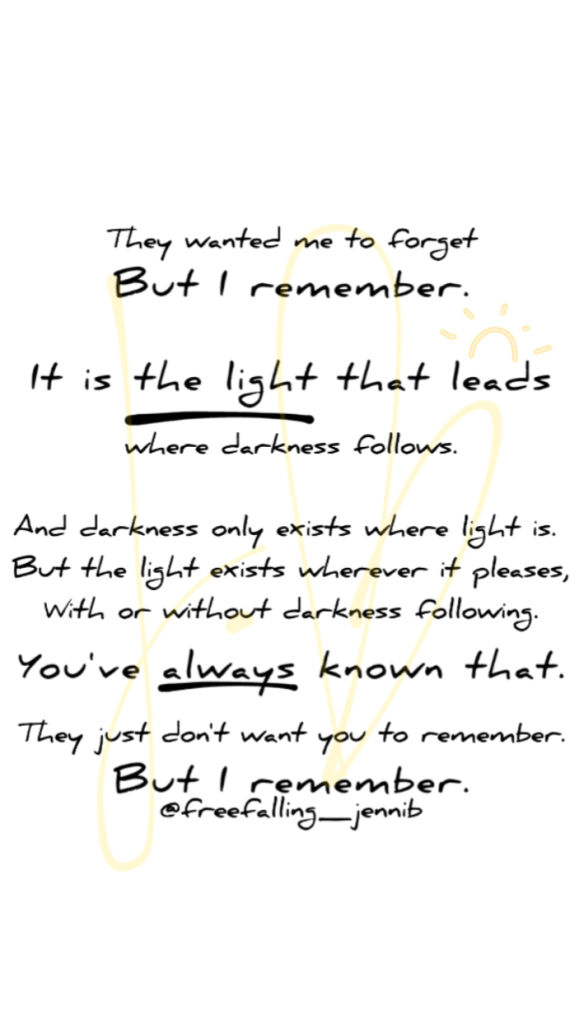 They wanted me to forget
But I remember.
It is the light that leads
where darkness follows.
And darkness only exists where light is.
But the light exists wherever it pleases,
With or without darkness following.
You've always known that.
They just don't want you to remember.
But I remember.
@freefalling__jennib